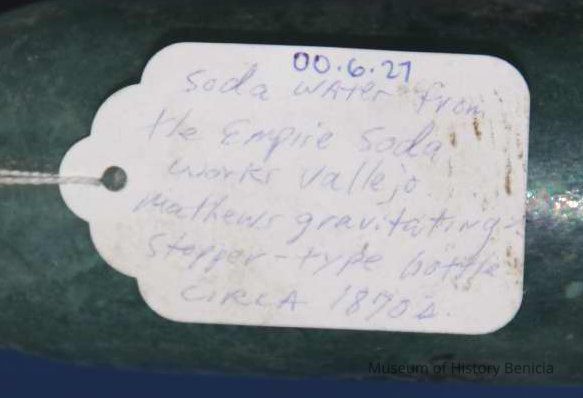 00.6.27
Soda WATER from
the Empire Soda
works Vallejo
Mathews gravitating
Stopper-type bottle
CIRCA 1870s.
Museum of History Benicia